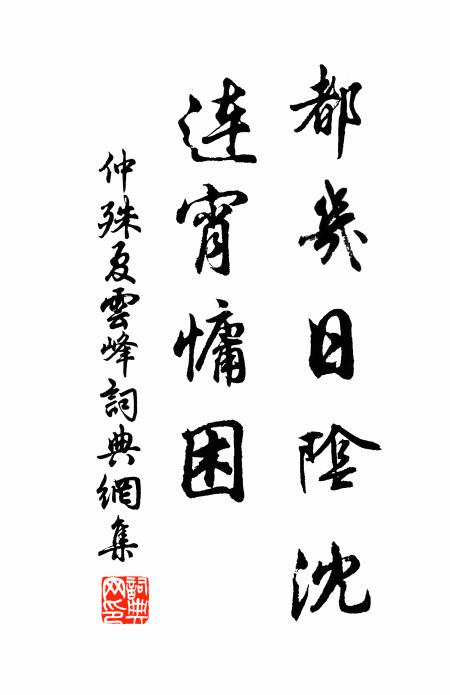 都幾日陰沈
連宵慵困
仲殊夏雲峰詞典網集